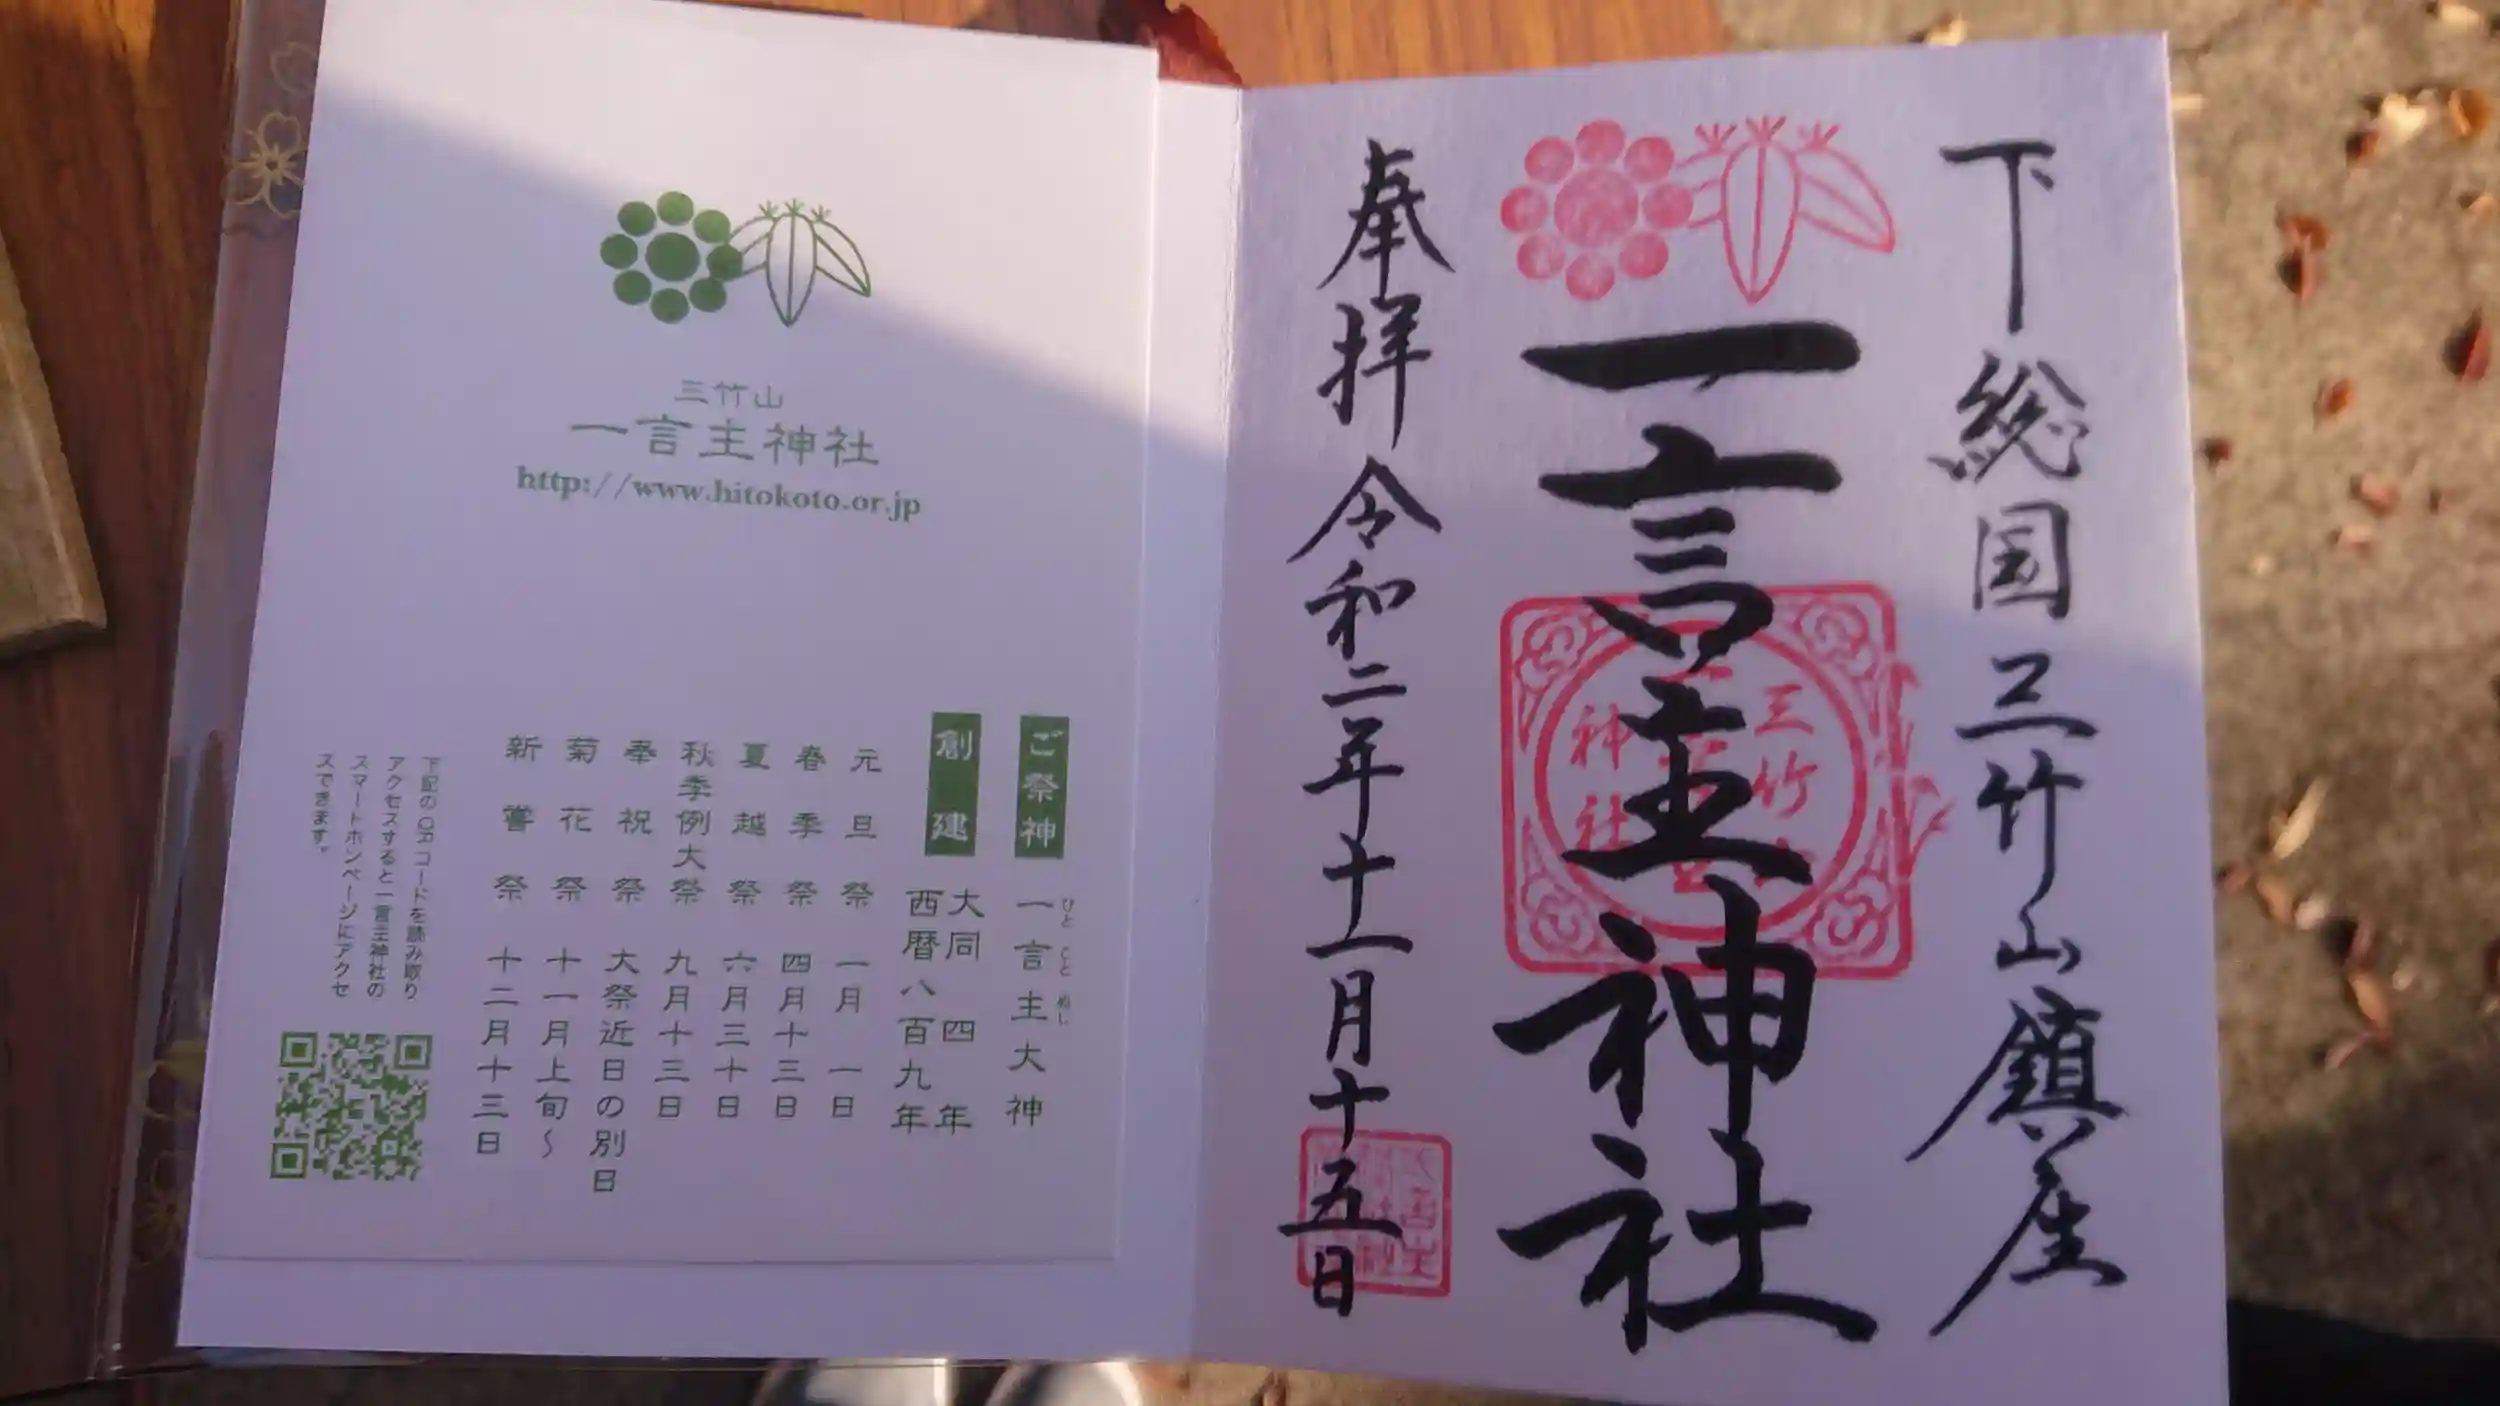 下総国三竹山鎮座
一言主神社
奉拝 令和二年十一月十五日
三竹
神社
三竹山
一言主神社
http://www.hitokoto.or.jp
ご祭神 一言主大神
ひとことぬし
創建 大同四年
西暦八百九年
元旦祭 一月一日
春季祭 四月十三日
夏越祭 六月三十日
秋季例大祭 九月十三日
奉祝祭 大祭近日の別日
菊花祭 十一月上旬～
新嘗祭 十二月十三日
下記のQRコードを読み取り
アクセスすると一言主神社の
スマートホンページにアクセ
スできます。